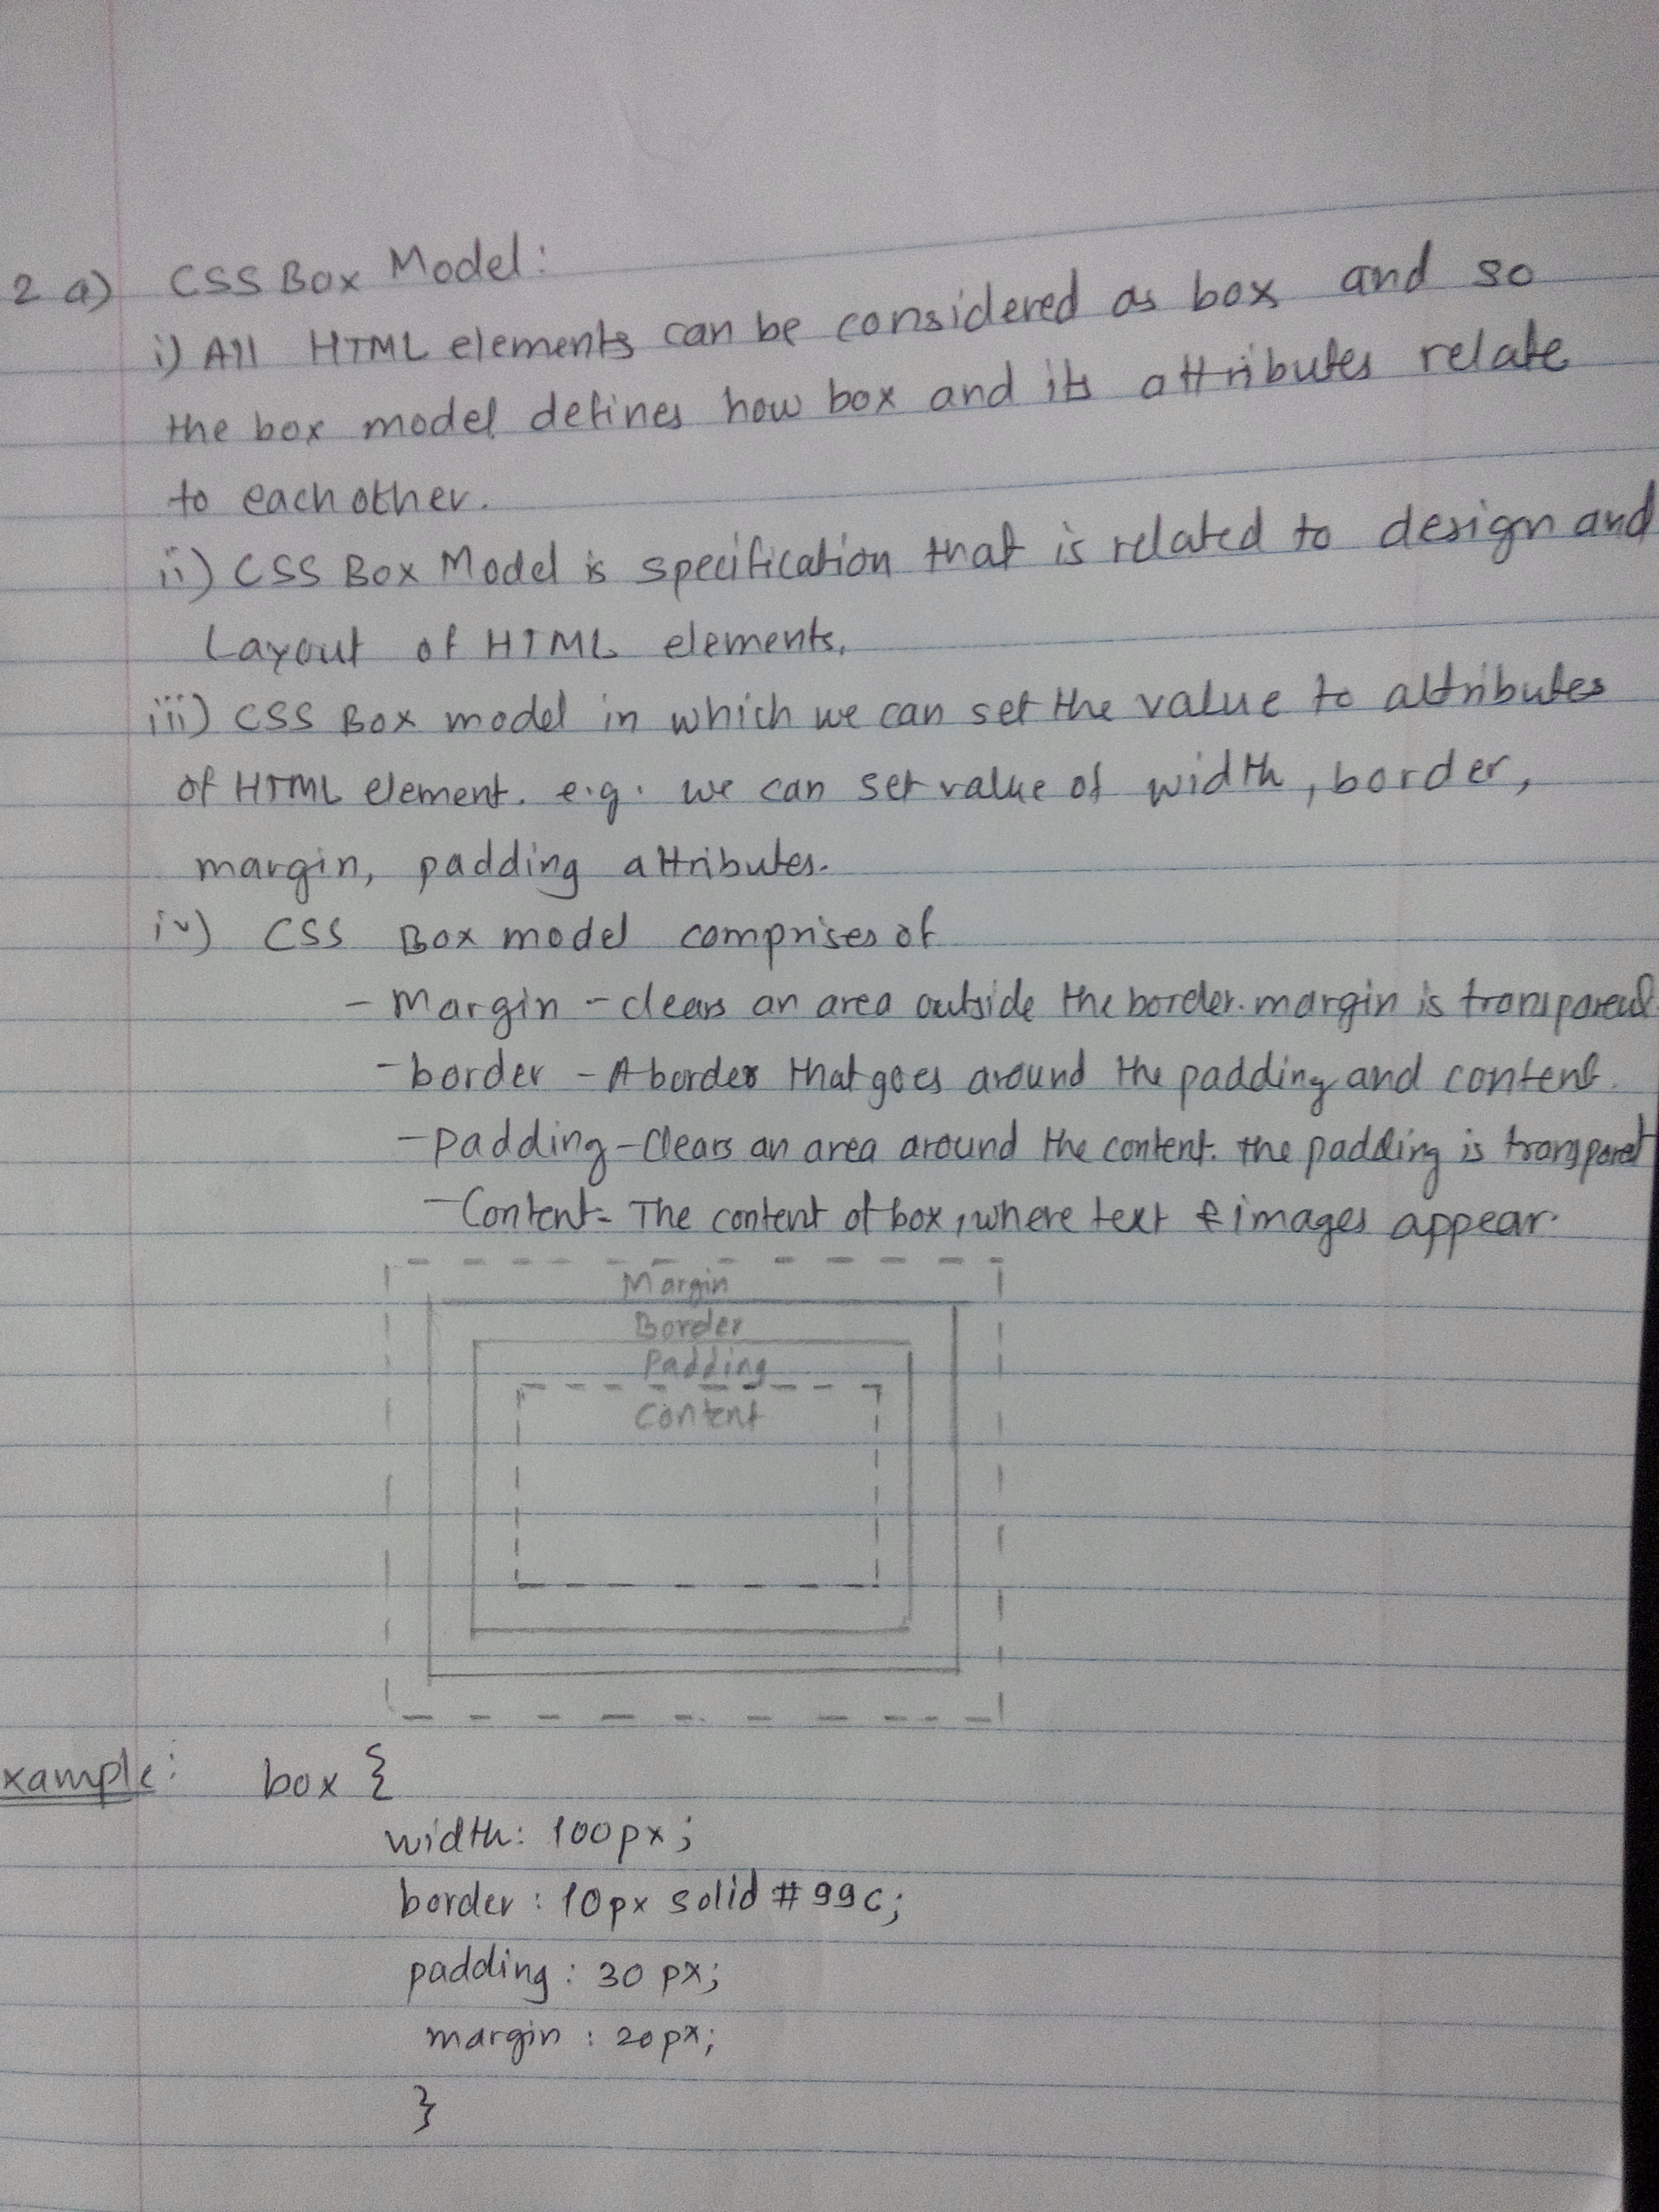 2 a) CSS Box Model:
i) All HTML elements can be considered as box and so
the box model defines how box and its attributes relate
to each other.
ii) CSS Box Model is specification that is related to design and
Layout of HTML elements.
iii) CSS Box model in which we can set the value to attributes
of HTML element. e.g. we can set value of width, border,
margin, padding attributes.
iv) CSS Box model comprises of
- Margin - clears an area outside the border. margin is transparent
- border - A border that goes around the padding and content.
- padding - Clears an area around the content. the padding is transparet
- Content - The content of box, where text & images appear.
Margin
Border
Padding
Content
xample: box {
width: 100px;
border: 10px solid #99c;
padding: 30 px;
margin: 20px;
}